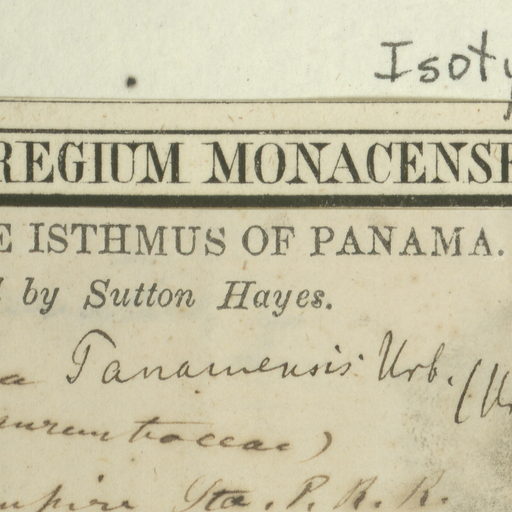 Isoty
REGIUM MONACENSE
E ISTHMUS OF PANAMA.
by Sutton Hayes.
a Panamensis Urb. (Ur
Sta. P. R. R.